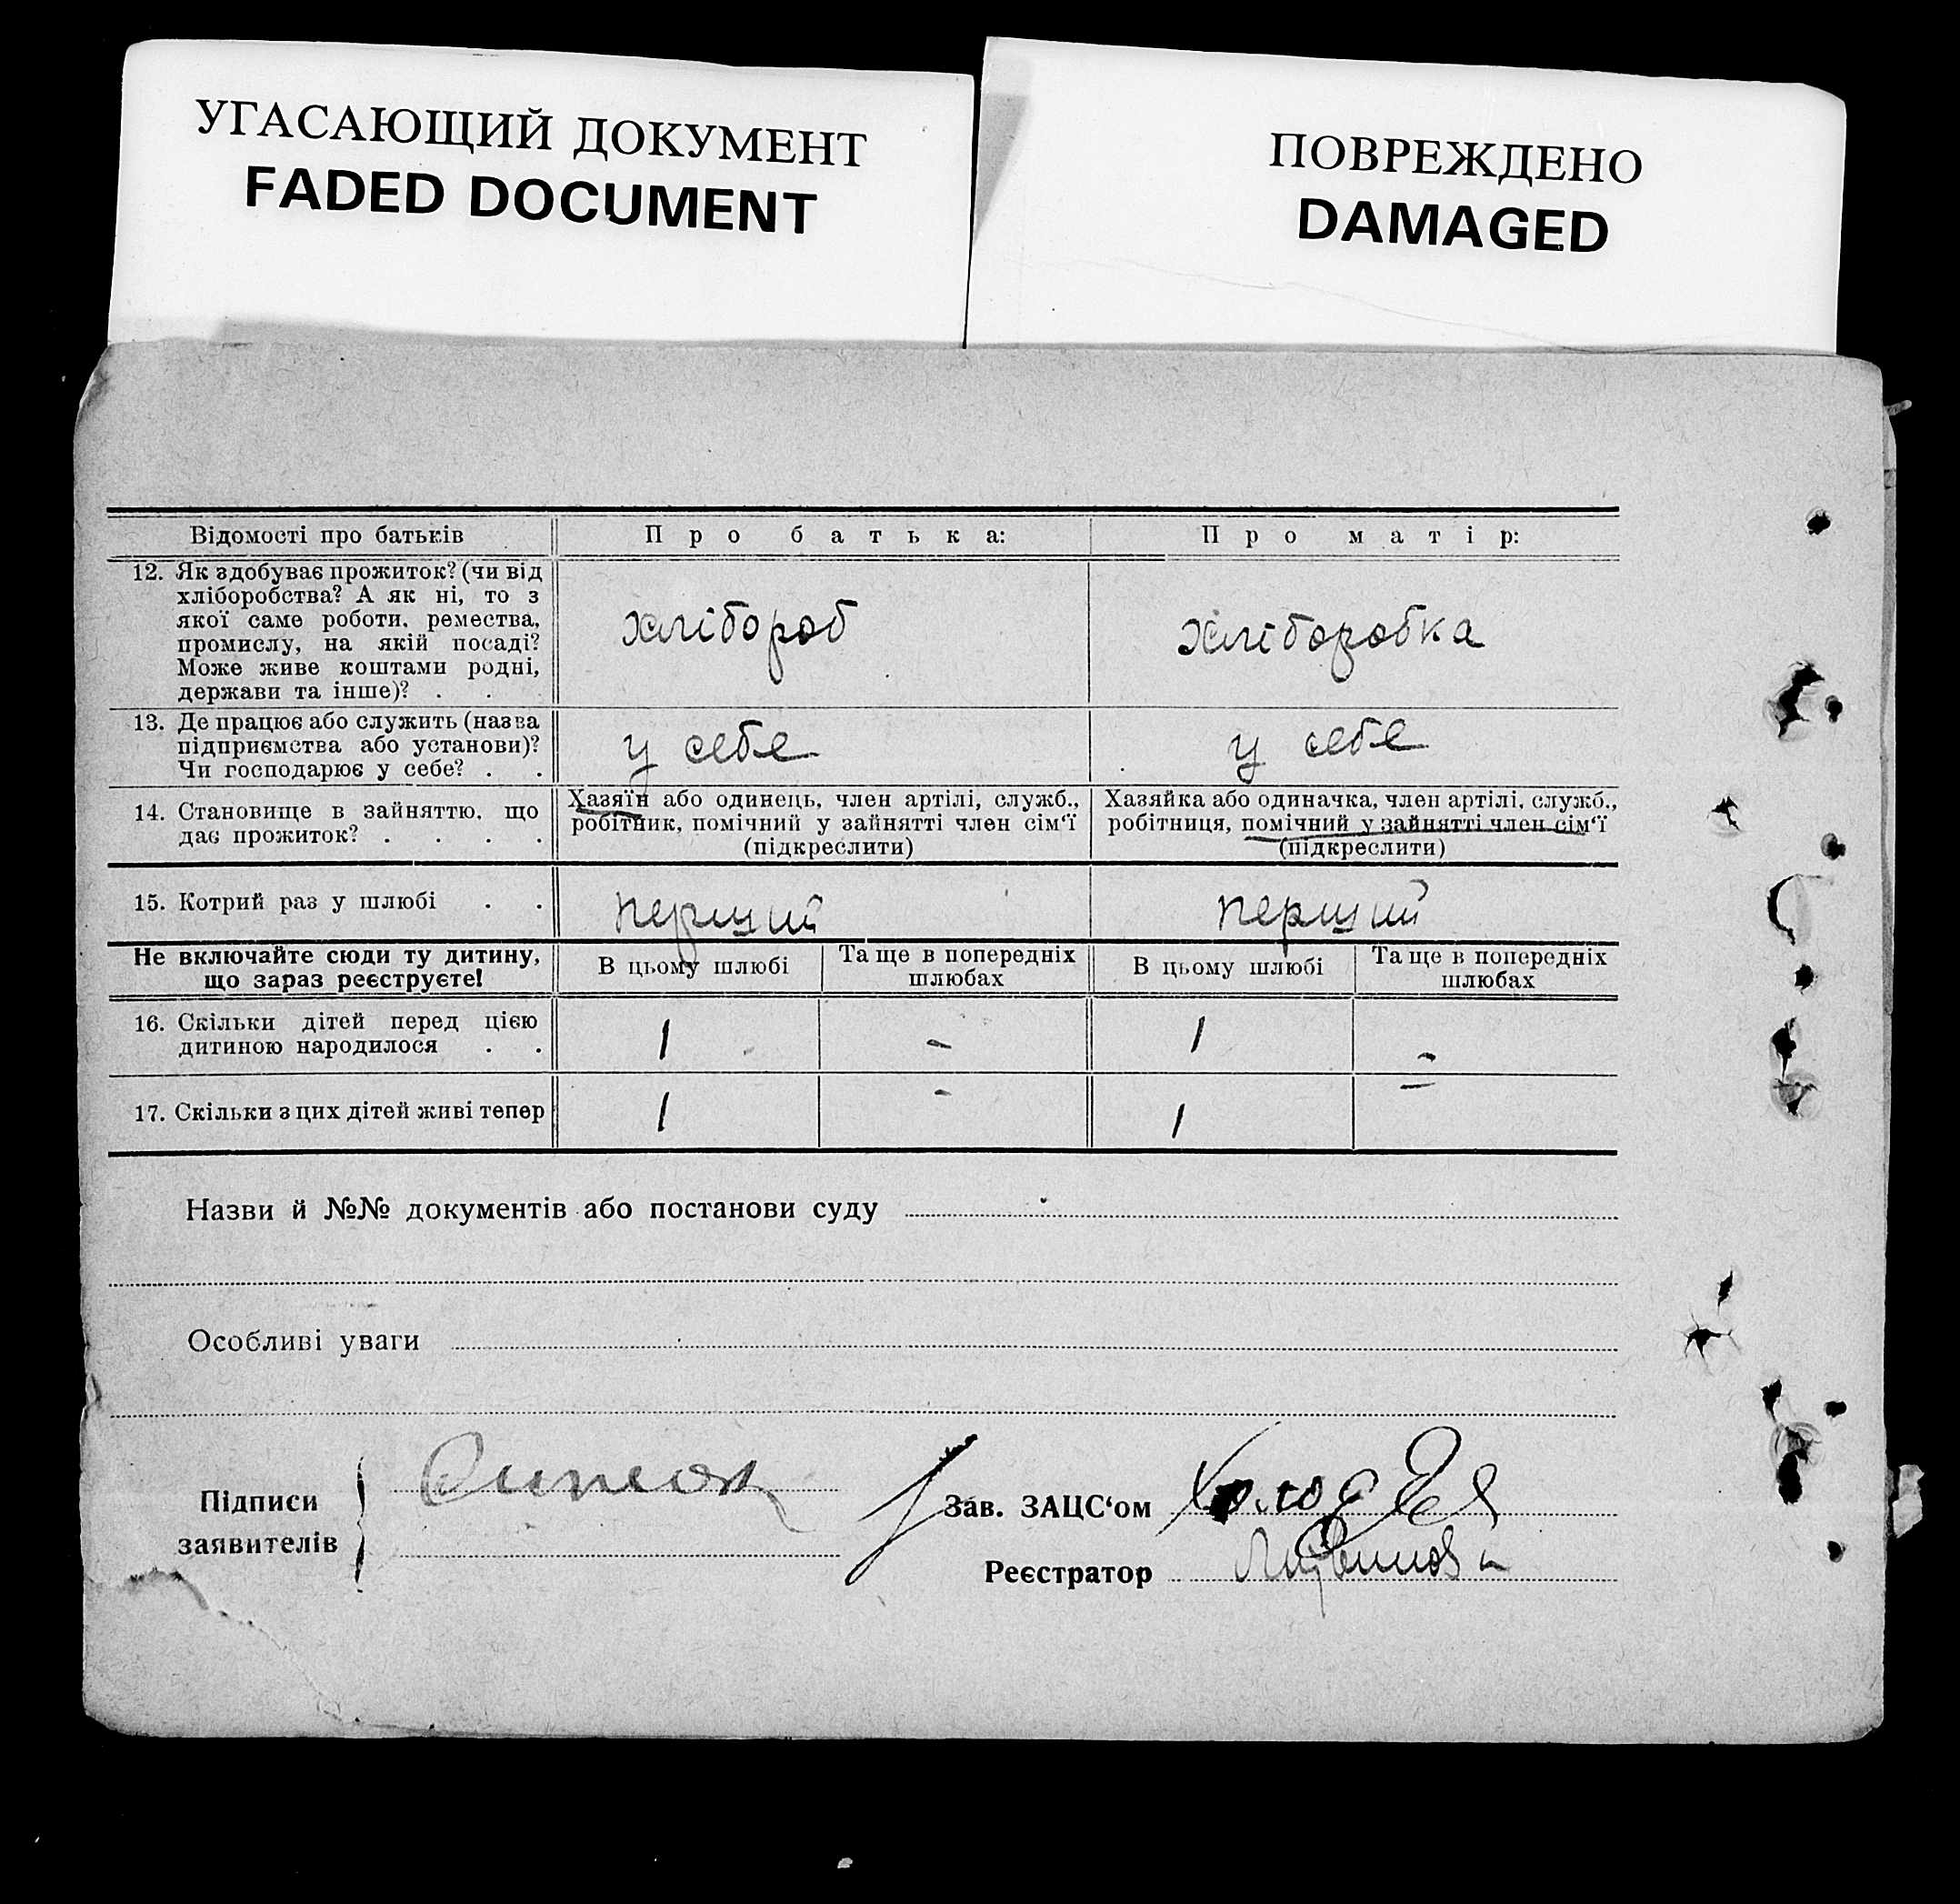 УГАСАЮЩИЙ ДОКУМЕНТ
FADED DOCUMENT
ПОВРЕЖДЕНО
DAMAGED
Відомості про батьків
Про батька:
Про матір:
12. Як здобуває прожиток? (чи від
хліборобства? А як ні, то з
якої саме роботи, ремества,
промислу, на якій посаді?
Може живе коштами родні,
держави та інше)? . .
хлібороб
хліборобка
13. Де працює або служить (назва
підприємства або установи)?
Чи господарює у себе? . .
у себе
у себе
14. Становище в зайняттю, що
дає прожиток? . . . .
Хазяїн або одинець, член артілі, служб.,
робітник, помічний у зайнятті член сім‘ї
(підкреслити)
Хазяйка або одиначка, член артілі, служб.,
робітниця, помічний у зайнятті член сім‘ї
(підкреслити)
15. Котрий раз у шлюбі . .
перший
перший
Не включайте сюди ту дитину,
що зараз реєструєте!
В цьому шлюбі
Та ще в попередніх
шлюбах
В цьому шлюбі
Та ще в попередніх
шлюбах
16. Скільки дітей перед цією
дитиною народилося . .
1
-
1
-
17. Скільки з цих дітей живі тепер
1
-
1
-
Назви й №№ документів або постанови суду
Особливі уваги
Підписи
заявителів
Зав. ЗАЦС‘ом
Реєстратор